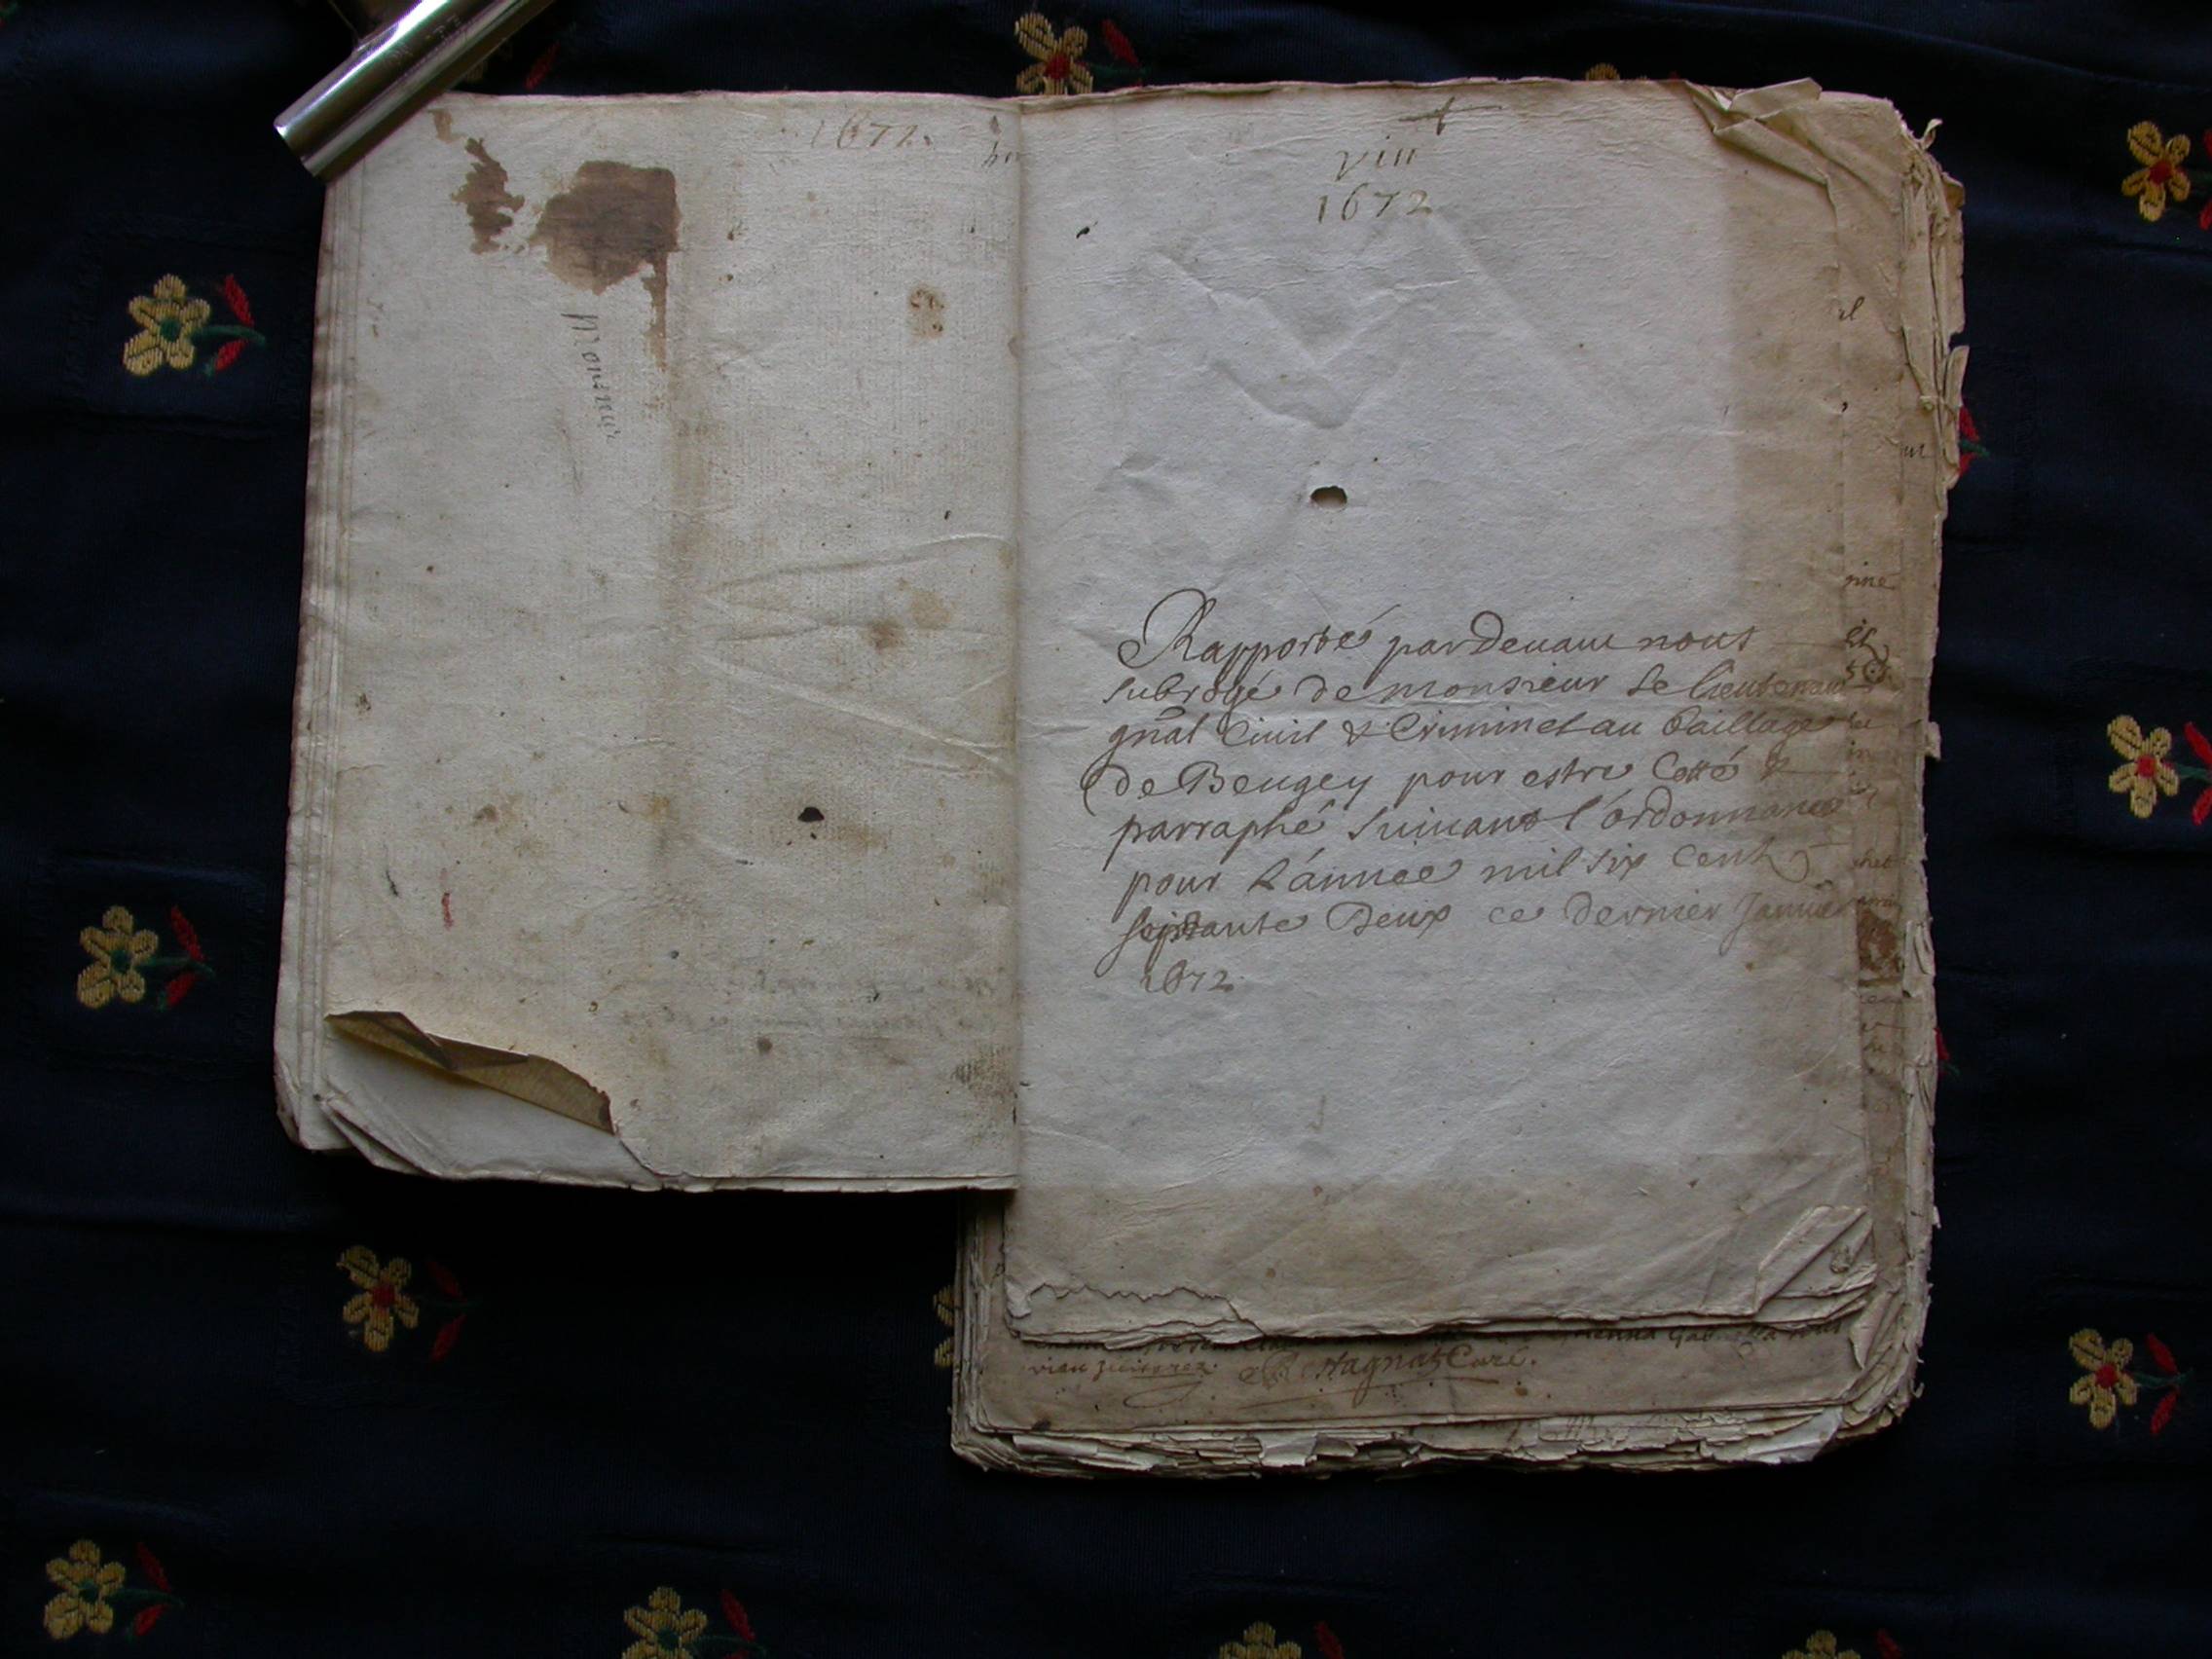 1671.
Monsieur
viii
1672
Rapporté pardeuant nous
subrogé de monsieur le lieutenant
gñal Ciuil & Criminel au bailliage
de Beugey pour estre Cotté &
parraphé suiuant l'ordonnance
pour l'année mil six cent
septante deux ce dernier Januier
1672.
Curé.